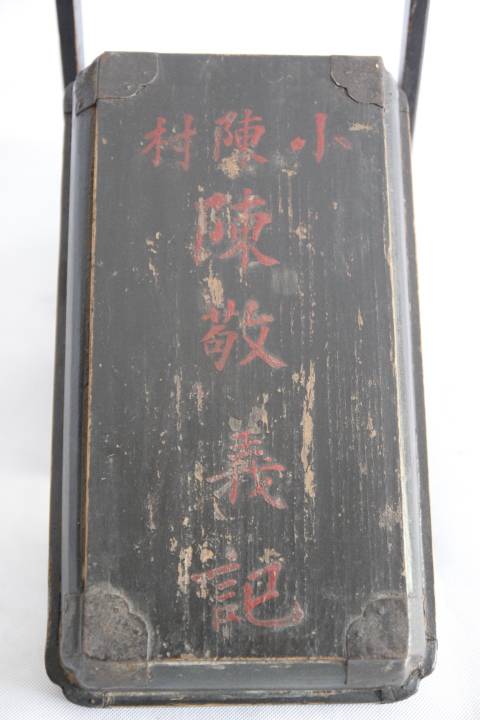 小陳村
陳敬義記